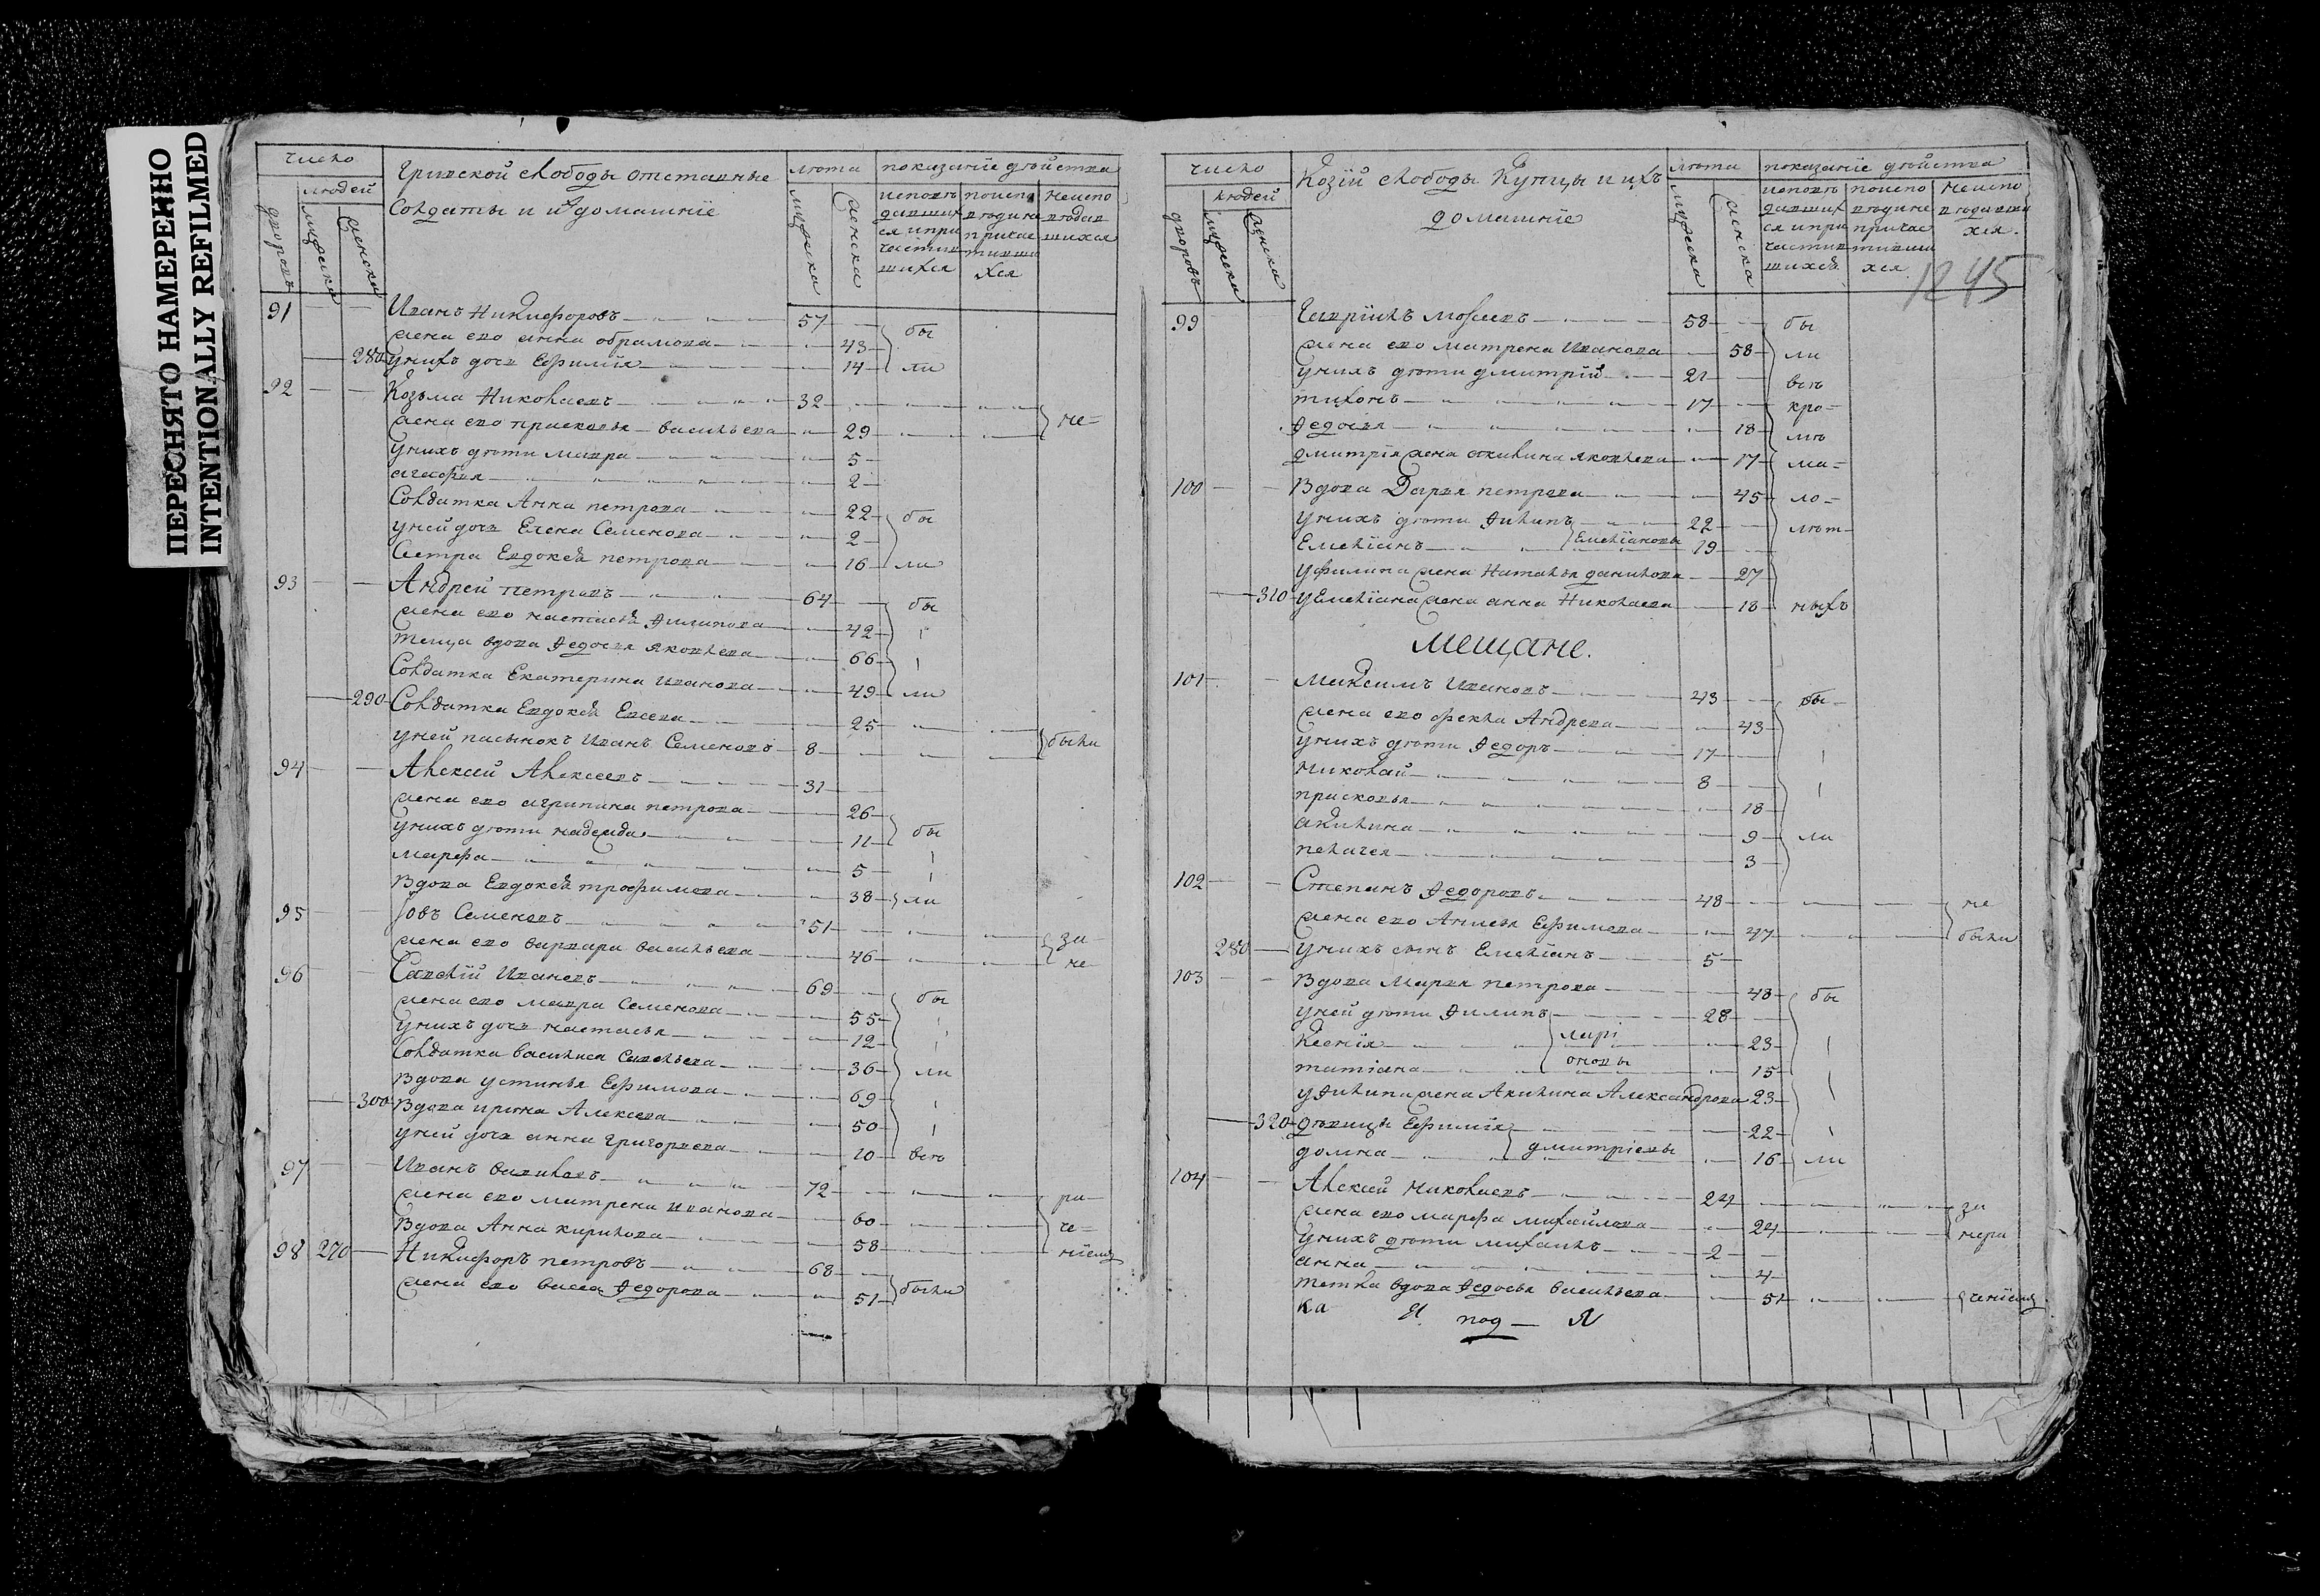 ПЕРЕСНЯТО НАМЕРЕННО
INTENTIONALLY REFILMED
число
людей
дворовъ
мужеска
женска
Гривской слободы отставные
Солдаты и ихъ домашніе
лѣта
мужеска
женска
показаніе дѣйства
исповѣ
давших
ся и при
частив
шихся
по испо
вѣди не
причас
тивши
хся
не испо
вѣдав
шихся
91 Иванъ Никифоровъ 57 бы
жена ево анна обрамова 43
280 у них дочь Ефимія 14 ли
92 Козьма Николаевъ 32
жена ево прасковья васильева 29 не
у них дѣти мавра 5
агафья 2
Солдатка Анна петрова 22 бы
у ней дочь Елена Семенова 2
Сестра Евдокея петрова 16 ли
93 Андрей петровъ 64 бы
жена ево настасья Филипова 42
теща вдова Федосья яковлева 66
Солдатка Екатерина иванова 49 ли
290 Солдатка Евдокея Евсева 25
у ней пасынокъ Иванъ Семеновъ 8 были
94 Алексей Алексеевъ 31
жена ево агрипина петрова 26
у нихъ дѣти надежда 11 бы
марфа 5
Вдова Евдокея трофимова 38 ли
95 Іовъ Семеновъ 51
жена ево варвара васильева 46 за
не
96 Савелій Ивановъ 69 бы
жена ево мавра Семенова 55
у нихъ дочь настасья 12
Солдатка василиса Савельева 36 ли
Вдова устинья Ефимова 69
300 Вдова ирина Алексева 50
у ней дочь анна григорьева 10 всѣ
97 Иванъ вавиловъ 72
жена ево матрена иванова 60 ра
Вдова Анна кирилова 58 че
нiемъ
98 270 Никифоръ петровъ 68
жена ево васса Федорова 51 были
число
людей
дворовъ
мужеска
женска
Козiй слободы Купцы и ихъ
домашніе
лѣта
мужеска
женска
показаніе дѣйства
исповѣ
давших
ся и при
частив
шихся
по испо
вѣди не
причас
тивши
хся
не испо
вѣдавши
хся.
1245
99 Гавріилъ мосеевъ 58 бы
жена ево матрена Иванова 58 ли
у нихъ дѣти дмитрій 21 всѣ
тихонъ 17 кро=
Федосья 18 мѣ
дмитрія жена акилина яковлева 17 ма=
100 Вдова Дарья петрова 45 ло=
у нихъ дѣти Филипъ 22 лѣт
Емеліянъ Емеліяновы 19
у филипа жена Наталья данилова 27
310 у Емеліяна жена анна Николаева 18 ныхъ
Мещане.
101 Максимъ Ивановъ 43 бы
жена ево фекла Андрева 43
у нихъ дѣти Федоръ 17
Николай 8
прасковья 18
акилина 9 ли
пелагея 3
102 Степанъ Федоровъ 48 не
жена ево Анисья Ефимова 47 были
280 у нихъ сынъ Емеліянъ 5
103 Вдова Марья петрова 48 бы
у ней дѣти Филипъ 28
Ксенія лари 23
татіана оновы 15
у Филипа жена Акилина Александрова 23
320 дѣвицы Ефимія 22
домна дмитріевы 16 ли
104 Алексей Николаевъ 24 за
жена ево марфа михайлова 24 нера
у нихъ дѣти михаилъ 2
анна 4
тетка вдова Федосья васильева 51 ченiемъ
ка